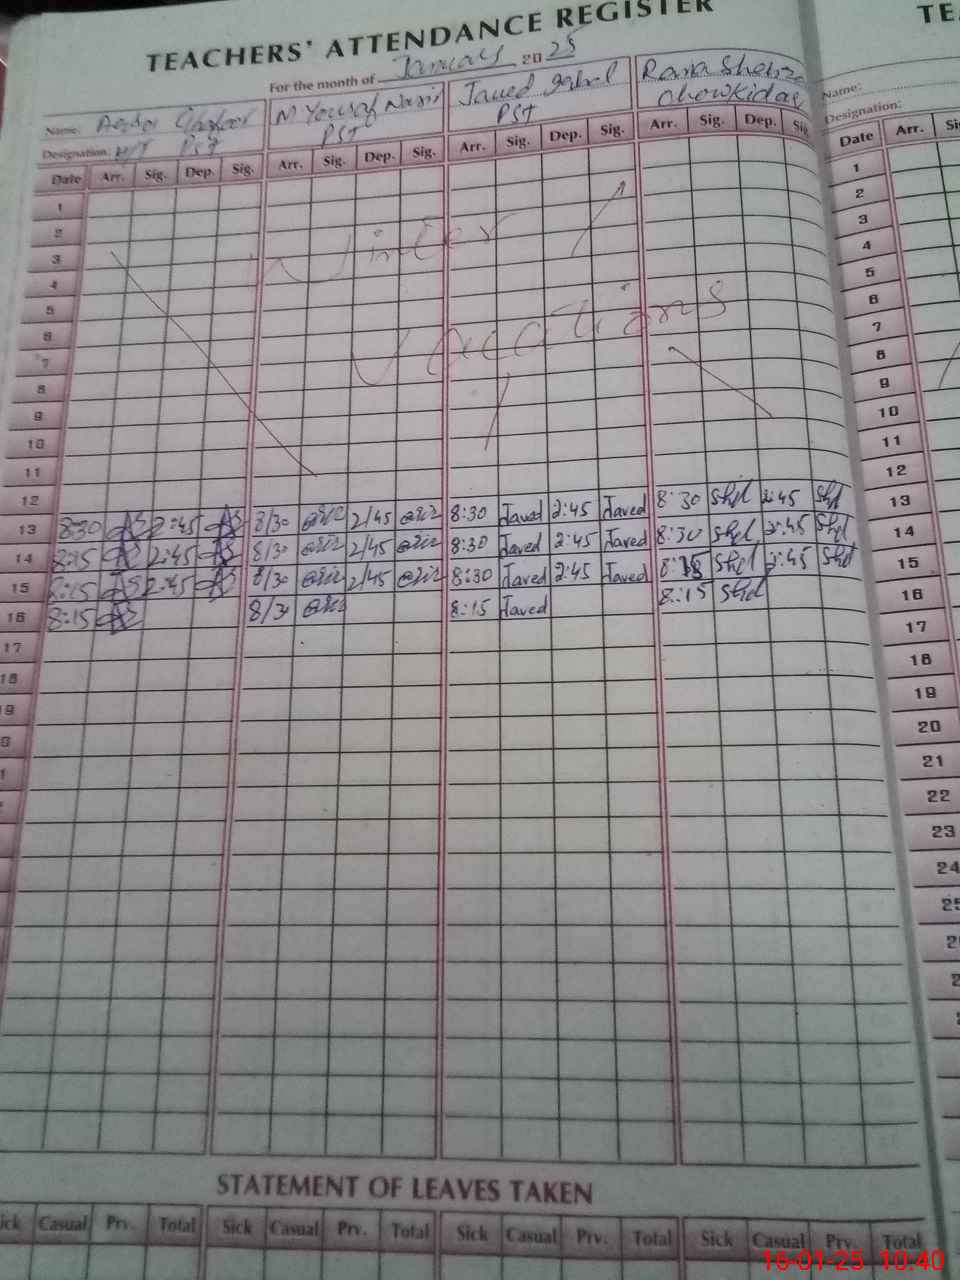 TEACHERS' ATTENDANCE REGISTER TE
For the month of January 2025
Name: Ghafoor M Yousaf Nasir Javed Iqbal Rana Name:
Designation: H/T PST PST PST Chowkidar Designation:
Date Arr. Sig. Dep. Sig. Arr. Sig. Dep. Sig. Arr. Sig. Dep. Sig. Arr. Sig. Dep. Sig Date Arr. Si
1 1
2 2
3 Winter 3
4 4
5 5
6 Vacations 6
7 7
8 8
9 9
10 10
11 11
12 12
13 8:30 2:45 8/30 2/45 8:30 Javed 2:45 Javed 8:30 Shd 2:45 Shd 13
14 8:15 2:45 8/30 2/45 8:30 Javed 2:45 Javed 8:30 Shd 2:45 Shd 14
15 8:15 2:45 8/30 2/45 8:30 Javed 2:45 Javed 8:15 Shd 2:45 Shd 15
16 8:15 8/30 8:15 Javed 8:15 Shd 16
17 17
18 18
19 19
20
21
22
23
24
STATEMENT OF LEAVES TAKEN
ick Casual Prv. Total Sick Casual Prv. Total Sick Casual Prv. Total Sick Casual Prv. Total
16-01-25 10:40